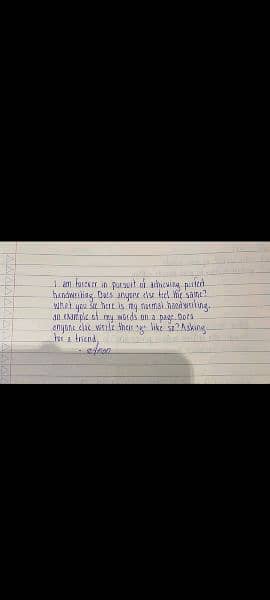 I am forever in pursuit of achieving perfect
handwriting. Does anyone else feel the same?
What you see here is my normal handwriting.
an example of my words on a page. Does
anyone else write their "g" like so? Asking
for a friend,